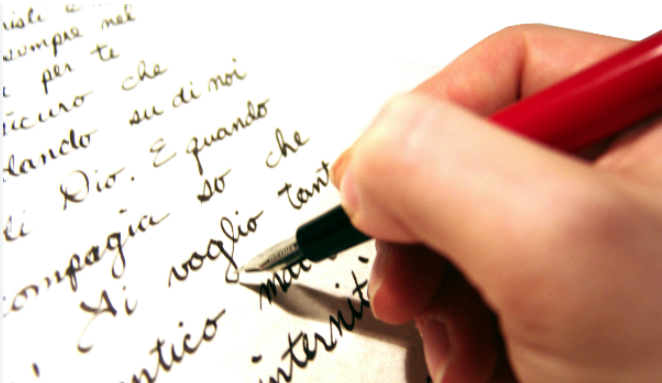 sempre nel
per te
icuro che
lando su di noi
di Dio. E quando
ompagia so che
Ti voglio tant
ntico mai
internit